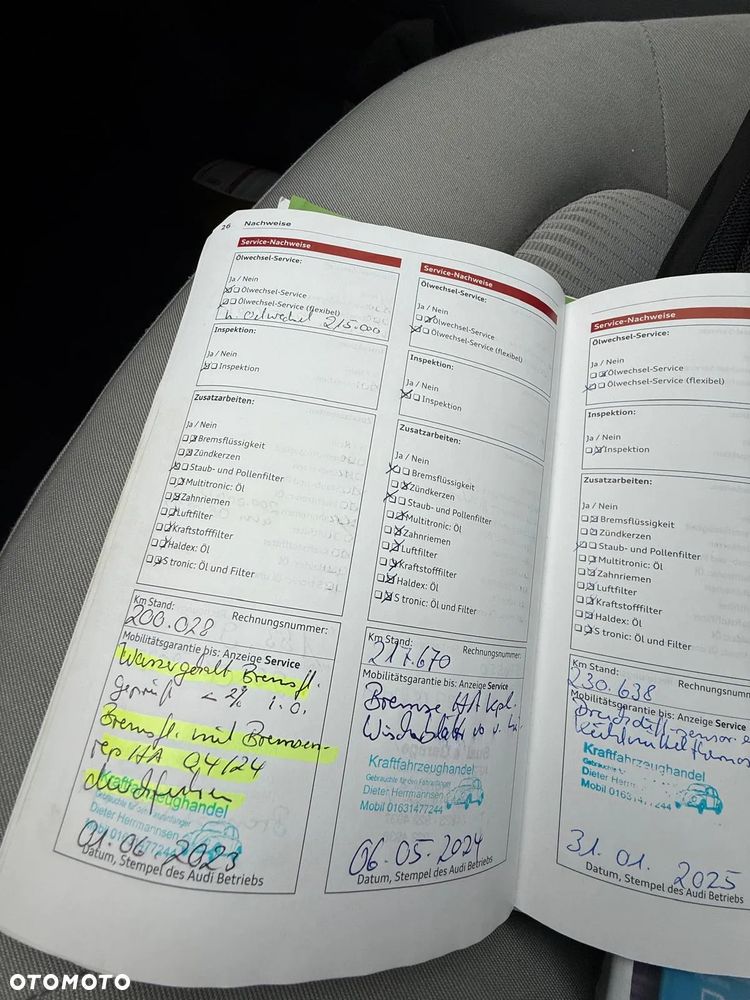 26 Nachweise
Service-Nachweise
Ölwechsel-Service:
Ja / Nein
Ölwechsel-Service
Ölwechsel-Service (flexibel)
Oelwechsel 215.000
Inspektion:
Ja / Nein
Inspektion
Zusatzarbeiten:
Ja / Nein
Bremsflüssigkeit
Zündkerzen
Staub- und Pollenfilter
Multitronic: Öl
Zahnriemen
Luftfilter
Kraftstofffilter
Haldex: Öl
S tronic: Öl und Filter
Km Stand:
Rechnungsnummer:
200.028
Mobilitätsgarantie bis: Anzeige Service
Wassergehalt Bremsfl.
geprüft < 2% i.O.
Bremsfl. mit Bremsen-
HA 04/24
Kraftfahrzeughandel
Gebrauchte für den Fahranfänger
Dieter Herrmannsen
Mobil 01631477244
01.06.2023
Datum, Stempel des Audi Betriebs
Service-Nachweise
Ölwechsel-Service:
Ja / Nein
Ölwechsel-Service
Ölwechsel-Service (flexibel)
Inspektion:
Ja / Nein
Inspektion
Zusatzarbeiten:
Ja / Nein
Bremsflüssigkeit
Zündkerzen
Staub- und Pollenfilter
Multitronic: Öl
Zahnriemen
Luftfilter
Kraftstofffilter
Haldex: Öl
S tronic: Öl und Filter
Km Stand:
Rechnungsnummer:
217.670
Mobilitätsgarantie bis: Anzeige Service
Bremse HA kpl.
Wischblätter v.
Kraftfahrzeughandel
Gebrauchte für den Fahranfänger
Dieter Herrmannsen
Mobil 01631477244
06.05.2024
Datum, Stempel des Audi Betriebs
Service-Nachweise
Ölwechsel-Service:
Ja / Nein
Ölwechsel-Service
Ölwechsel-Service (flexibel)
Inspektion:
Ja / Nein
Inspektion
Zusatzarbeiten:
Ja / Nein
Bremsflüssigkeit
Zündkerzen
Staub- und Pollenfilter
Multitronic: Öl
Zahnriemen
Luftfilter
Kraftstofffilter
Haldex: Öl
S tronic: Öl und Filter
Km Stand:
Rechnungsnumm
230.638
Mobilitätsgarantie bis: Anzeige Service
Kraftfahrzeughandel
Dieter
31.01.2025
Datum, Stempel des Audi Betriebs
OTOMOTO